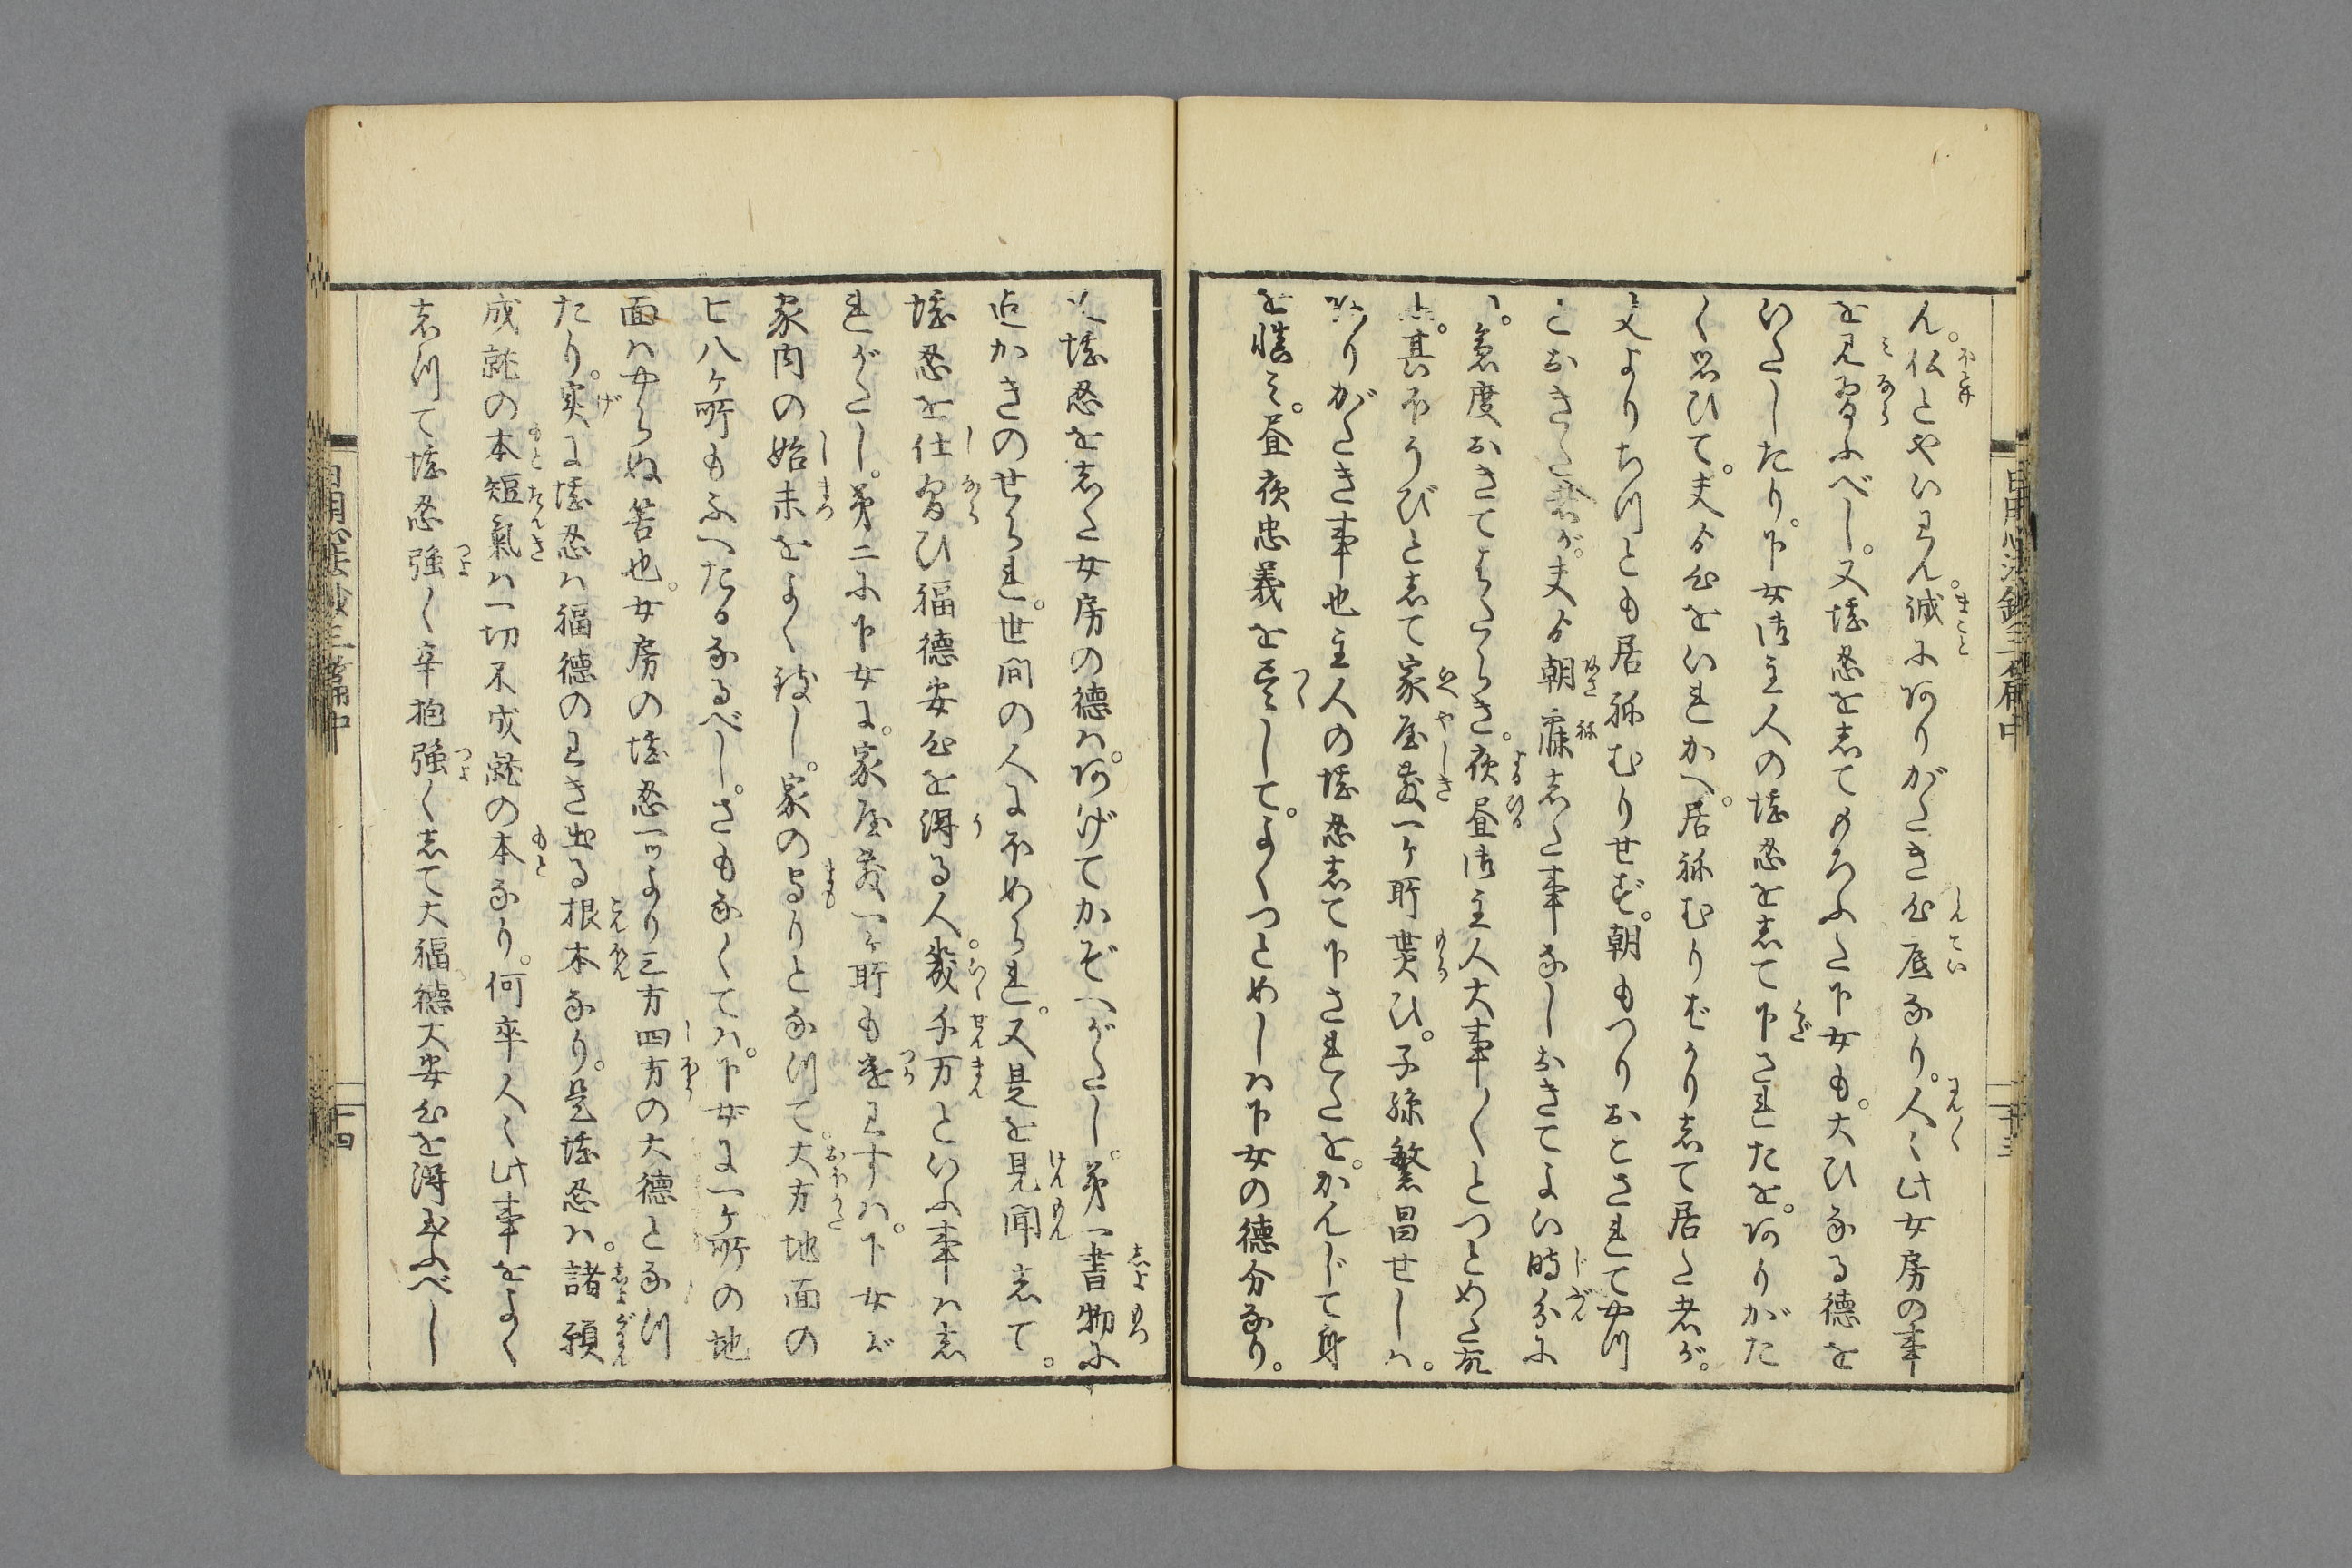 ん。仏とやいはん。誠にありがたき心底なり。人々此女房の事
を見習ふべし。又堪忍を志てもろふた下女も。大ひなる徳を
いたしたり。下女御主人の堪忍を志て下されたを。ありがた
く思ひて。夫から心をいれかへ。居祢むりばかり志て居た者が。
夫よりちつとも居祢むりせず。朝もつりおこされてやつ
とおきた者が。夫から朝寐志た事なしおきてよい時分に
急度おきてはたらき。夜昼御主人大事〳〵とつとめた故
其ほうびと志て家屋敷一ケ所貰ひ。子孫繁昌せしハ。
ありがたき事也主人の堪忍志て下されたを。かんじて身
を惜まず。昼夜忠義を尽して。よくつとめしハ下女の徳分なり。
堪忍を志た女房の徳ハ。あげてかぞへがたし。第一書物に
迄かきのせられ。世間の人にほめられ。又是を見聞志て。
堪忍を仕習ひ福徳安心を得る人。幾千万といふ事ハ志
れがたし。第二に下女に。家屋敷一ケ所も遣はすハ。下女が
家内の始末をよく致し。家の守りとなつて。大方地面の
七八ケ所もふへたるなるべし。さもなくてハ。下女に一ケ所の地
面ハやらぬ筈也。女房の堪忍一ツより三方四方の大徳となつ
たり。実に堪忍ハ福徳のわき出る根本なり。是堪忍ハ。諸願
成就の本短氣ハ一切不成就の本なり。何卒人々此事をよく
志つて堪忍強く辛抱強く志て大福徳大安心を得玉ふべし